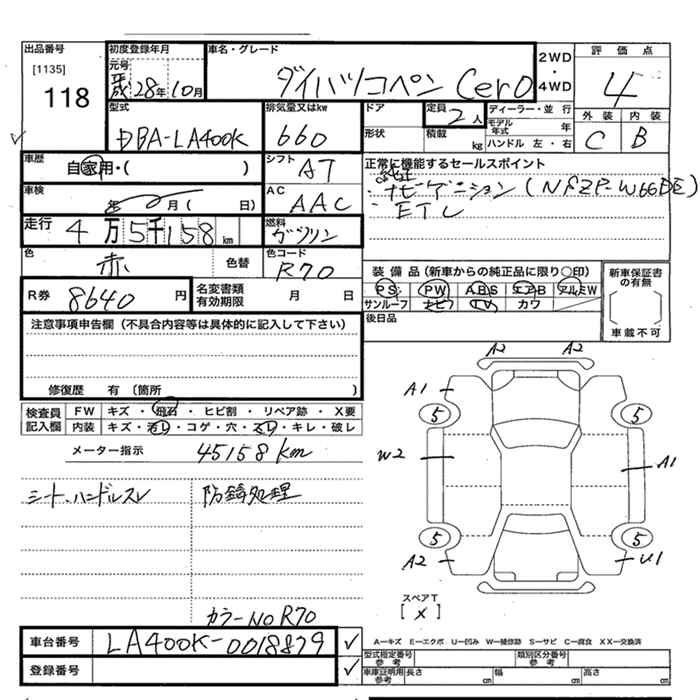 出品番号
[1135]
118
初度登録年月
元号
平成 28年 10月
車名・グレード
ダイハツコペン Cero
2WD
・
4WD
評価点
4
外装 内装
C B
型式
DBA-LA400K
排気量又はkw
660
ドア
形状
定員
2人
積載 kg
ディーラー・並行
モデル年式 年
ハンドル 左・右
車歴
自家用・( )
シフト
AT
車検
年 月( 日)
AC
AAC
走行
4万5千158km
燃料
ガソリン
色
赤
色替
色コード
R70
R券
8640円
名変書類
有効期限
月 日
正常に機能するセールスポイント
純正
・ナビゲーション(NSZP-W66DE)
装備品(新車からの純正品に限り○印)
PS PW ABS エアB アルミW
サンルーフ ナビ TV カワ
後日品
新車保証書
の有無
車載不可
注意事項申告欄(不具合内容等は具体的に記入して下さい)
修復歴 有(箇所 )
検査員
記入欄
FW キズ・飛石・ヒビ割・リペア跡・X要
内装 キズ・汚レ・コゲ・穴・スレ・キレ・破レ
メーター指示 45158km
シート、ハンドルスレ
防錆処理
カラーNo R70
A2 A2
A1
5 5
W2
A1
5 5
A2 U1
スペアT
[×]
車台番号
LA400K-0018879
登録番号
A−キズ E−エクボ U−凹み W−補修跡 S−サビ C−腐食 XX−交換済
型式指定番号
参考
類別区分番号
参考
車庫証明用
参考
長さ cm 幅 cm 高さ cm